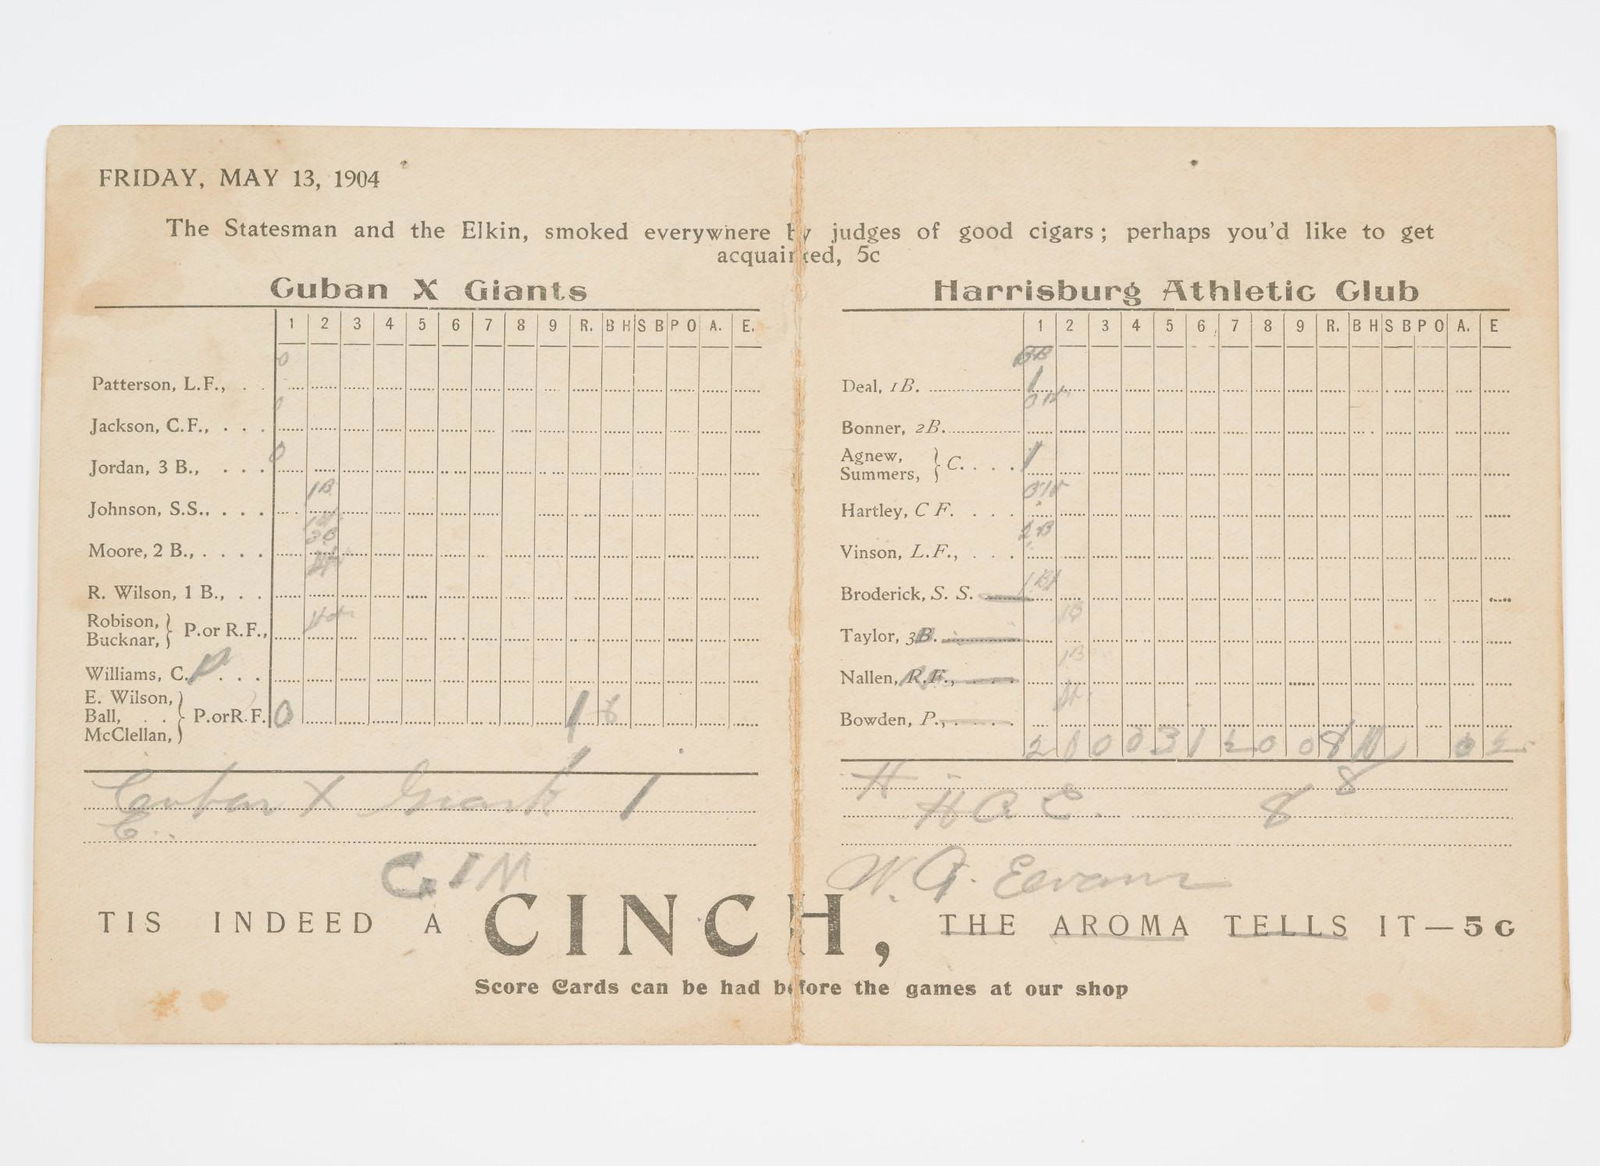 FRIDAY, MAY 13, 1904
The Statesman and the Elkin, smoked everywhere by judges of good cigars; perhaps you'd like to get
acquainted, 5c
Cuban X Giants
1 2 3 4 5 6 7 8 9 R. BH SB PO A. E.
0
Patterson, L.F., . .
Jackson, C.F., . . .
0
Jordan, 3 B., . . .
1B
Johnson, S.S., . . .
3B
Moore, 2 B., . . . .
R. Wilson, 1 B., . .
Robison, }
Bucknar, } P. or R.F.,
Williams, C. . . .
E. Wilson, }
Ball, . . } P. or R.F. 0 1 6
McClellan, }
Cuban X Giants 1
Harrisburg Athletic Club
1 2 3 4 5 6 7 8 9 R. BH SB PO A. E
BB
Deal, 1B. 1
Bonner, 2B.
Agnew, }
Summers, } C. . . . . 1
Hartley, C F. . . .
2B
Vinson, L.F., . . .
Broderick, S. S.
1B
Taylor, 3B.
1B
Nallen, R.F.,
Bowden, P.,
2 0 0 0 3 1 2 0 0 8
H 8
H A C. 8
W. G. Evans
TIS INDEED A CINCH, THE AROMA TELLS IT—5c
Score Cards can be had before the games at our shop